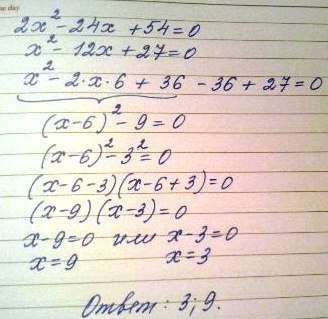 he day
2x² - 24x + 54 = 0
x² - 12x + 27 = 0
x² - 2·x·6 + 36 - 36 + 27 = 0
(x-6)² - 9 = 0
(x-6)² - 3² = 0
(x-6-3)(x-6+3) = 0
(x-9)(x-3) = 0
x-9=0 или x-3=0
x=9 x=3
Ответ: 3; 9.